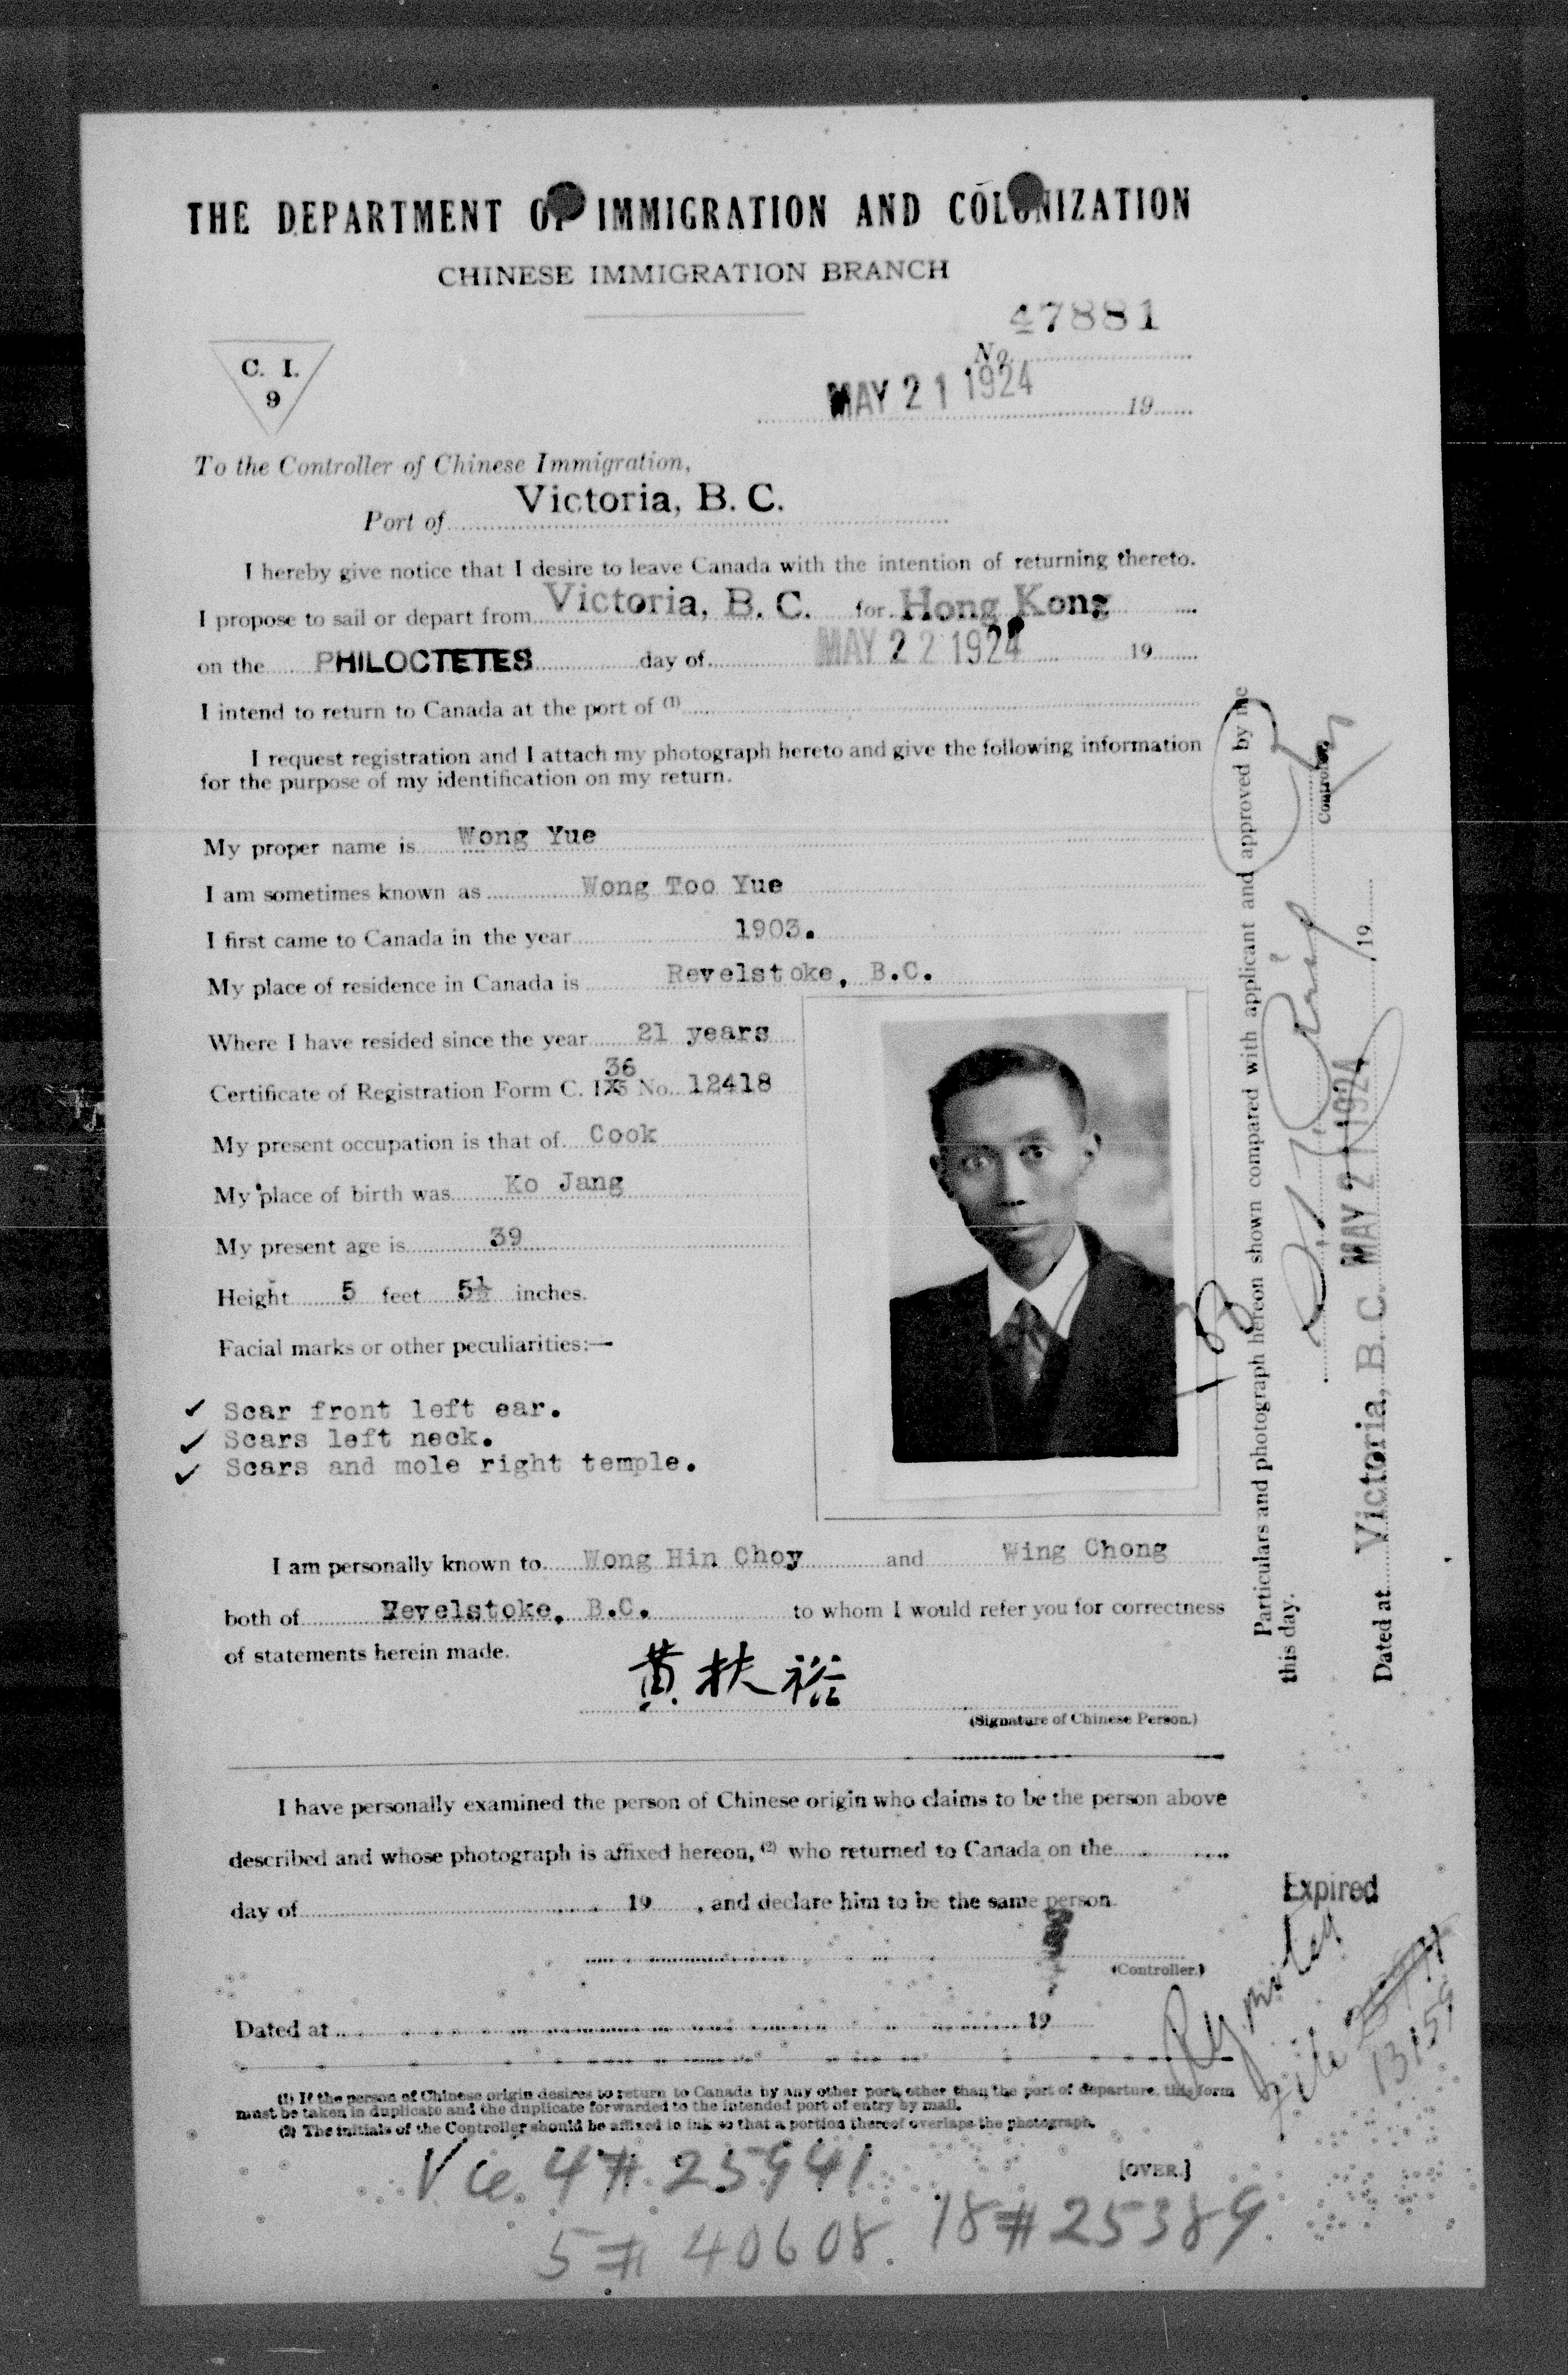 THE DEPARTMENT OF IMMIGRATION AND COLONIZATION
CHINESE IMMIGRATION BRANCH
47881
No.
C. I.
9
MAY 21 1924
19
To the Controller of Chinese Immigration,
Port of Victoria, B. C.
I hereby give notice that I desire to leave Canada with the intention of returning thereto.
I propose to sail or depart from Victoria, B. C. for Hong Kong
on the PHILOCTETES day of MAY 22 1924 19
I intend to return to Canada at the port of (1)
I request registration and I attach my photograph hereto and give the following information
for the purpose of my identification on my return.
My proper name is Wong Yue
I am sometimes known as Wong Too Yue
I first came to Canada in the year 1903.
My place of residence in Canada is Revelstoke, B.C.
Where I have resided since the year 21 years
36
Certificate of Registration Form C. I. No. 12418
My present occupation is that of Cook
My place of birth was Ko Jang
My present age is 39
Height 5 feet 5½ inches.
Facial marks or other peculiarities:—
✓ Scar front left ear.
✓ Scars left neck.
✓ Scars and mole right temple.
I am personally known to Wong Hin Choy and Wing Chong
both of Revelstoke, B.C. to whom I would refer you for correctness
of statements herein made.
黄扶裕
(Signature of Chinese Person.)
I have personally examined the person of Chinese origin who claims to be the person above
described and whose photograph is affixed hereon, (2) who returned to Canada on the
day of 19 , and declare him to be the same person.
(Controller.)
Dated at 19
(1) If the person of Chinese origin desires to return to Canada by any other port, other than the port of departure, this form
must be taken in duplicate and the duplicate forwarded to the intended port of entry by mail.
(2) The initials of the Controller should be affixed in ink so that a portion thereof overlaps the photograph.
[OVER.]
Vic. 4# 25941
5# 40608. 18# 25389.
Particulars and photograph hereon shown compared with applicant and approved by me
this day.
Controller
Dated at Victoria, B. C. MAY 21 1924 19
Expired
File
13159